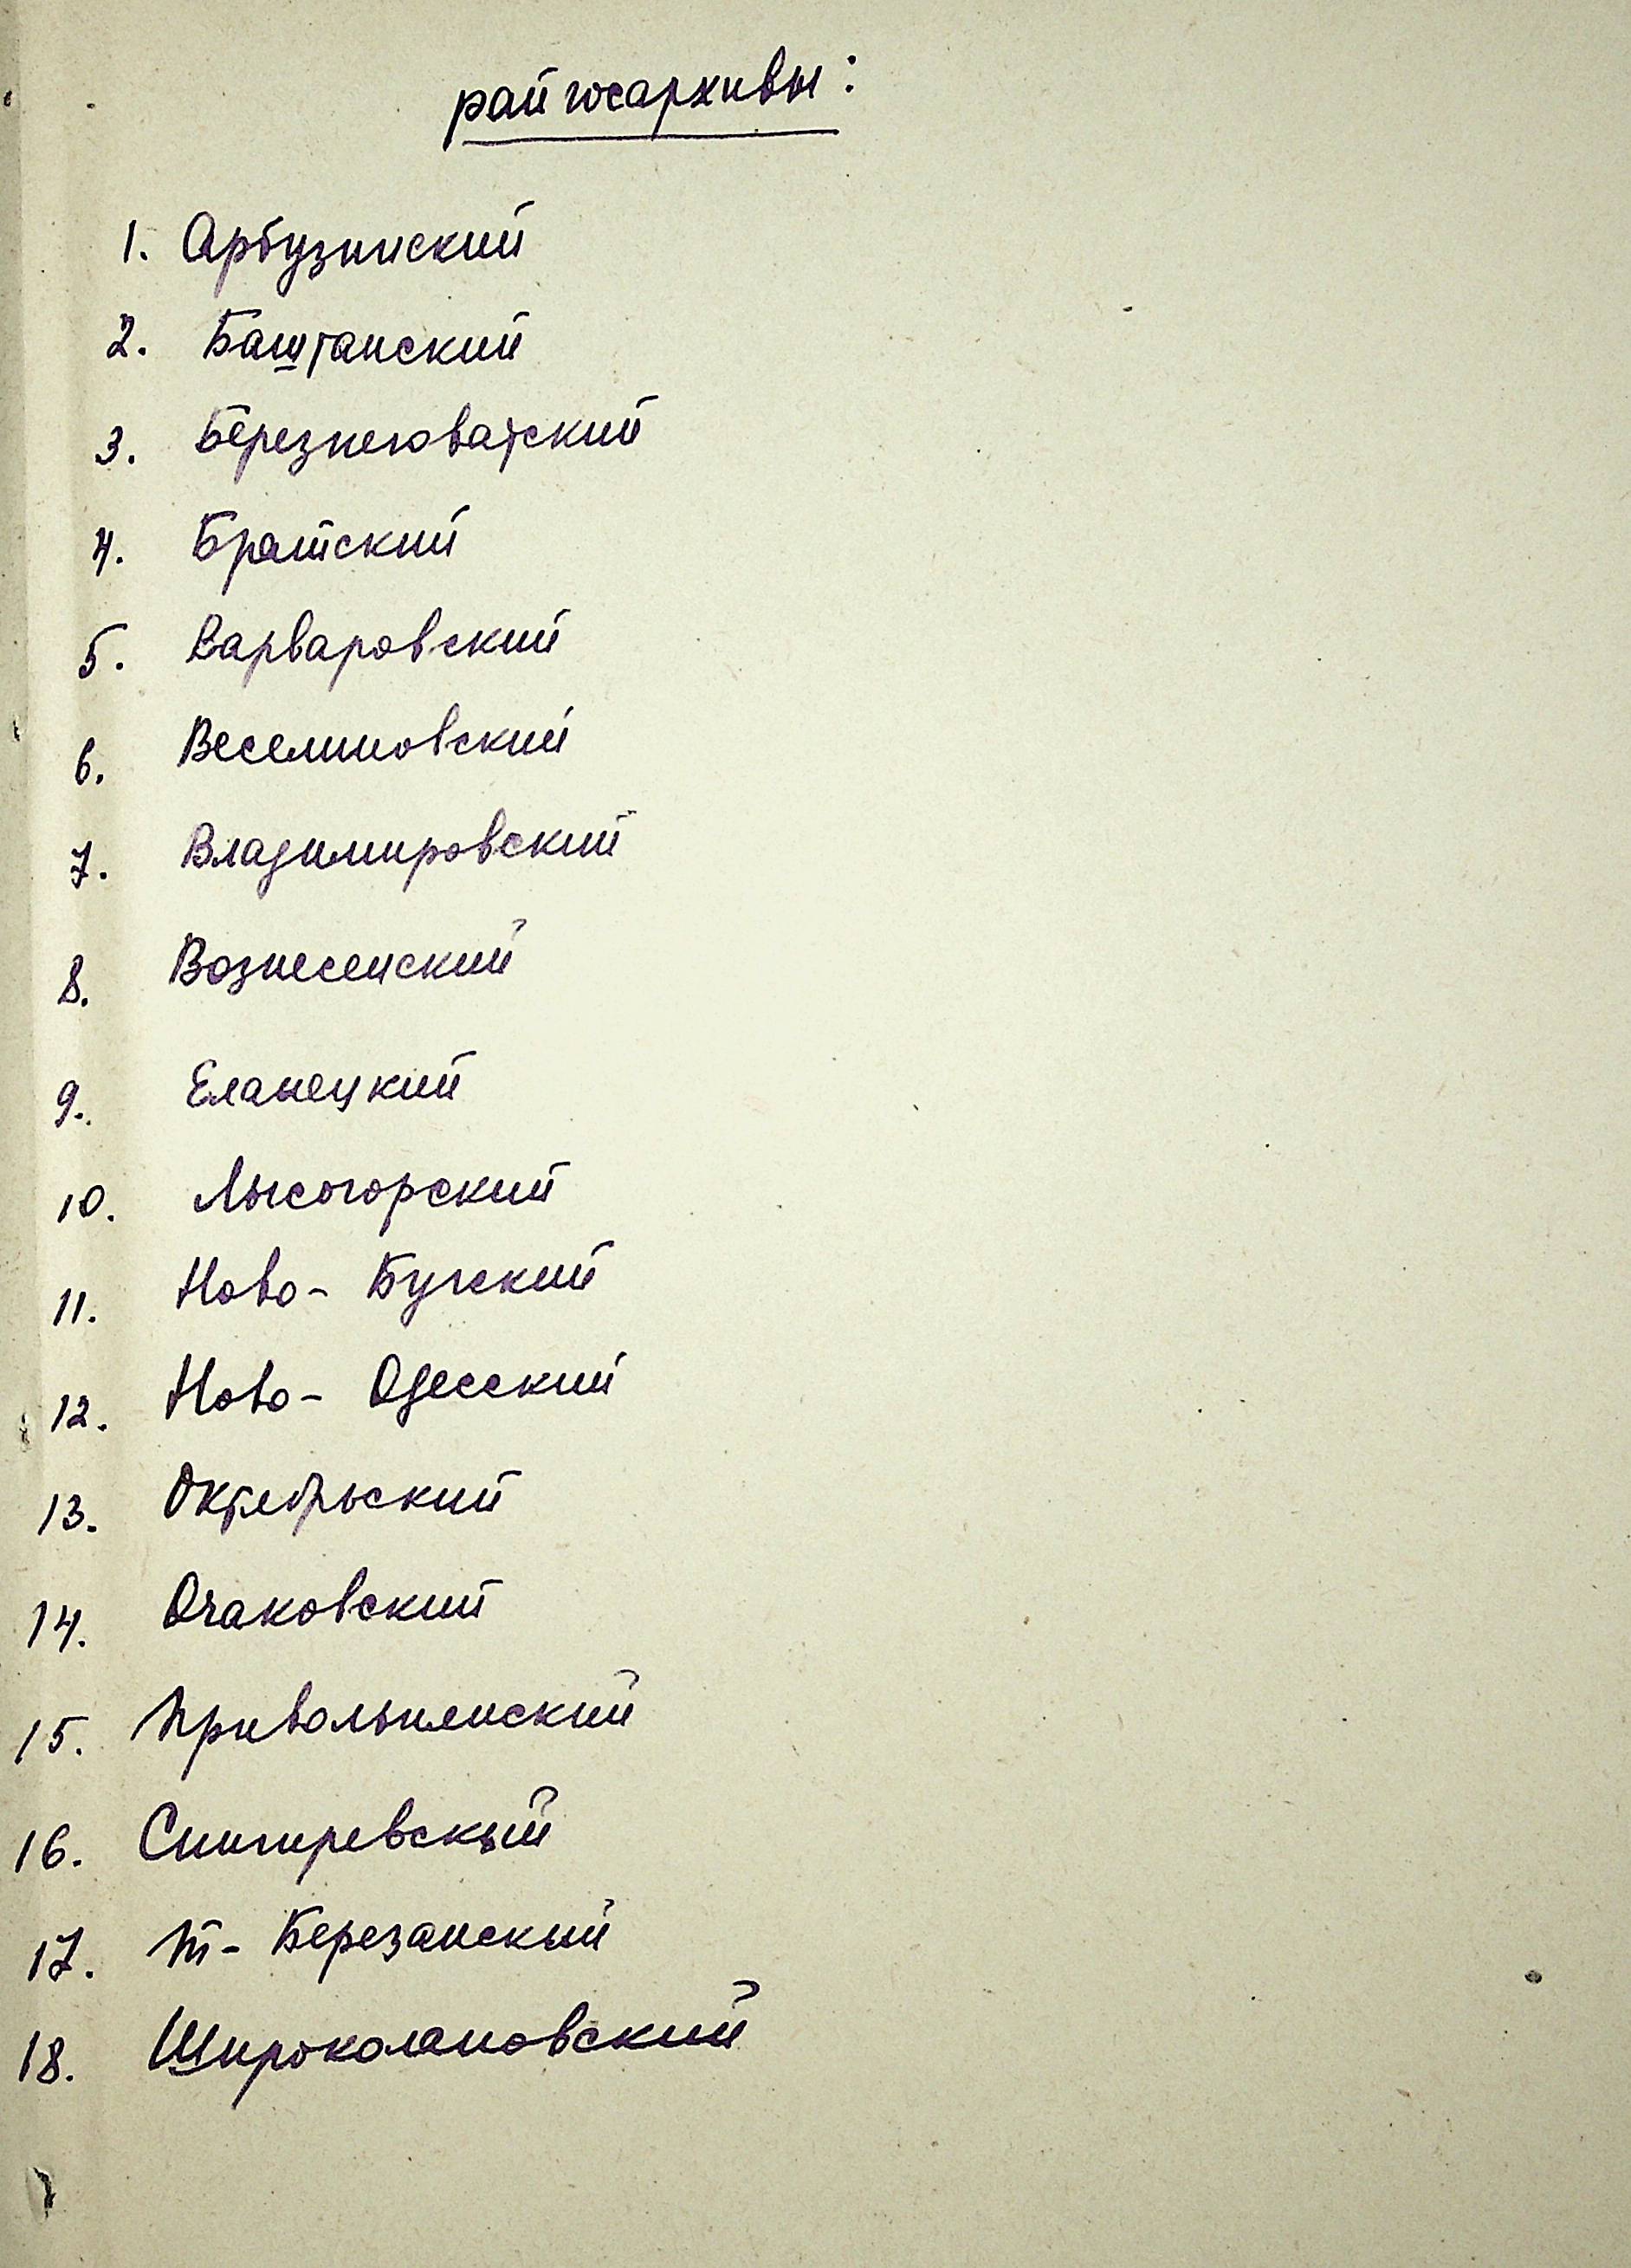 райгосархивы:
1. Арбузинский
2. Баштанский
3. Березнеговатский
4. Братский
5. Варваровский
6. Веселиновский
7. Владимировский
8. Вознесенский
9. Еланецкий
10. Лысогорский
11. Ново-Бугский
12. Ново-Одесский
13. Октябрьский
14. Очаковский
15. Привольнянский
16. Снигиревский
17. Т-Березанский
18. Широколановский